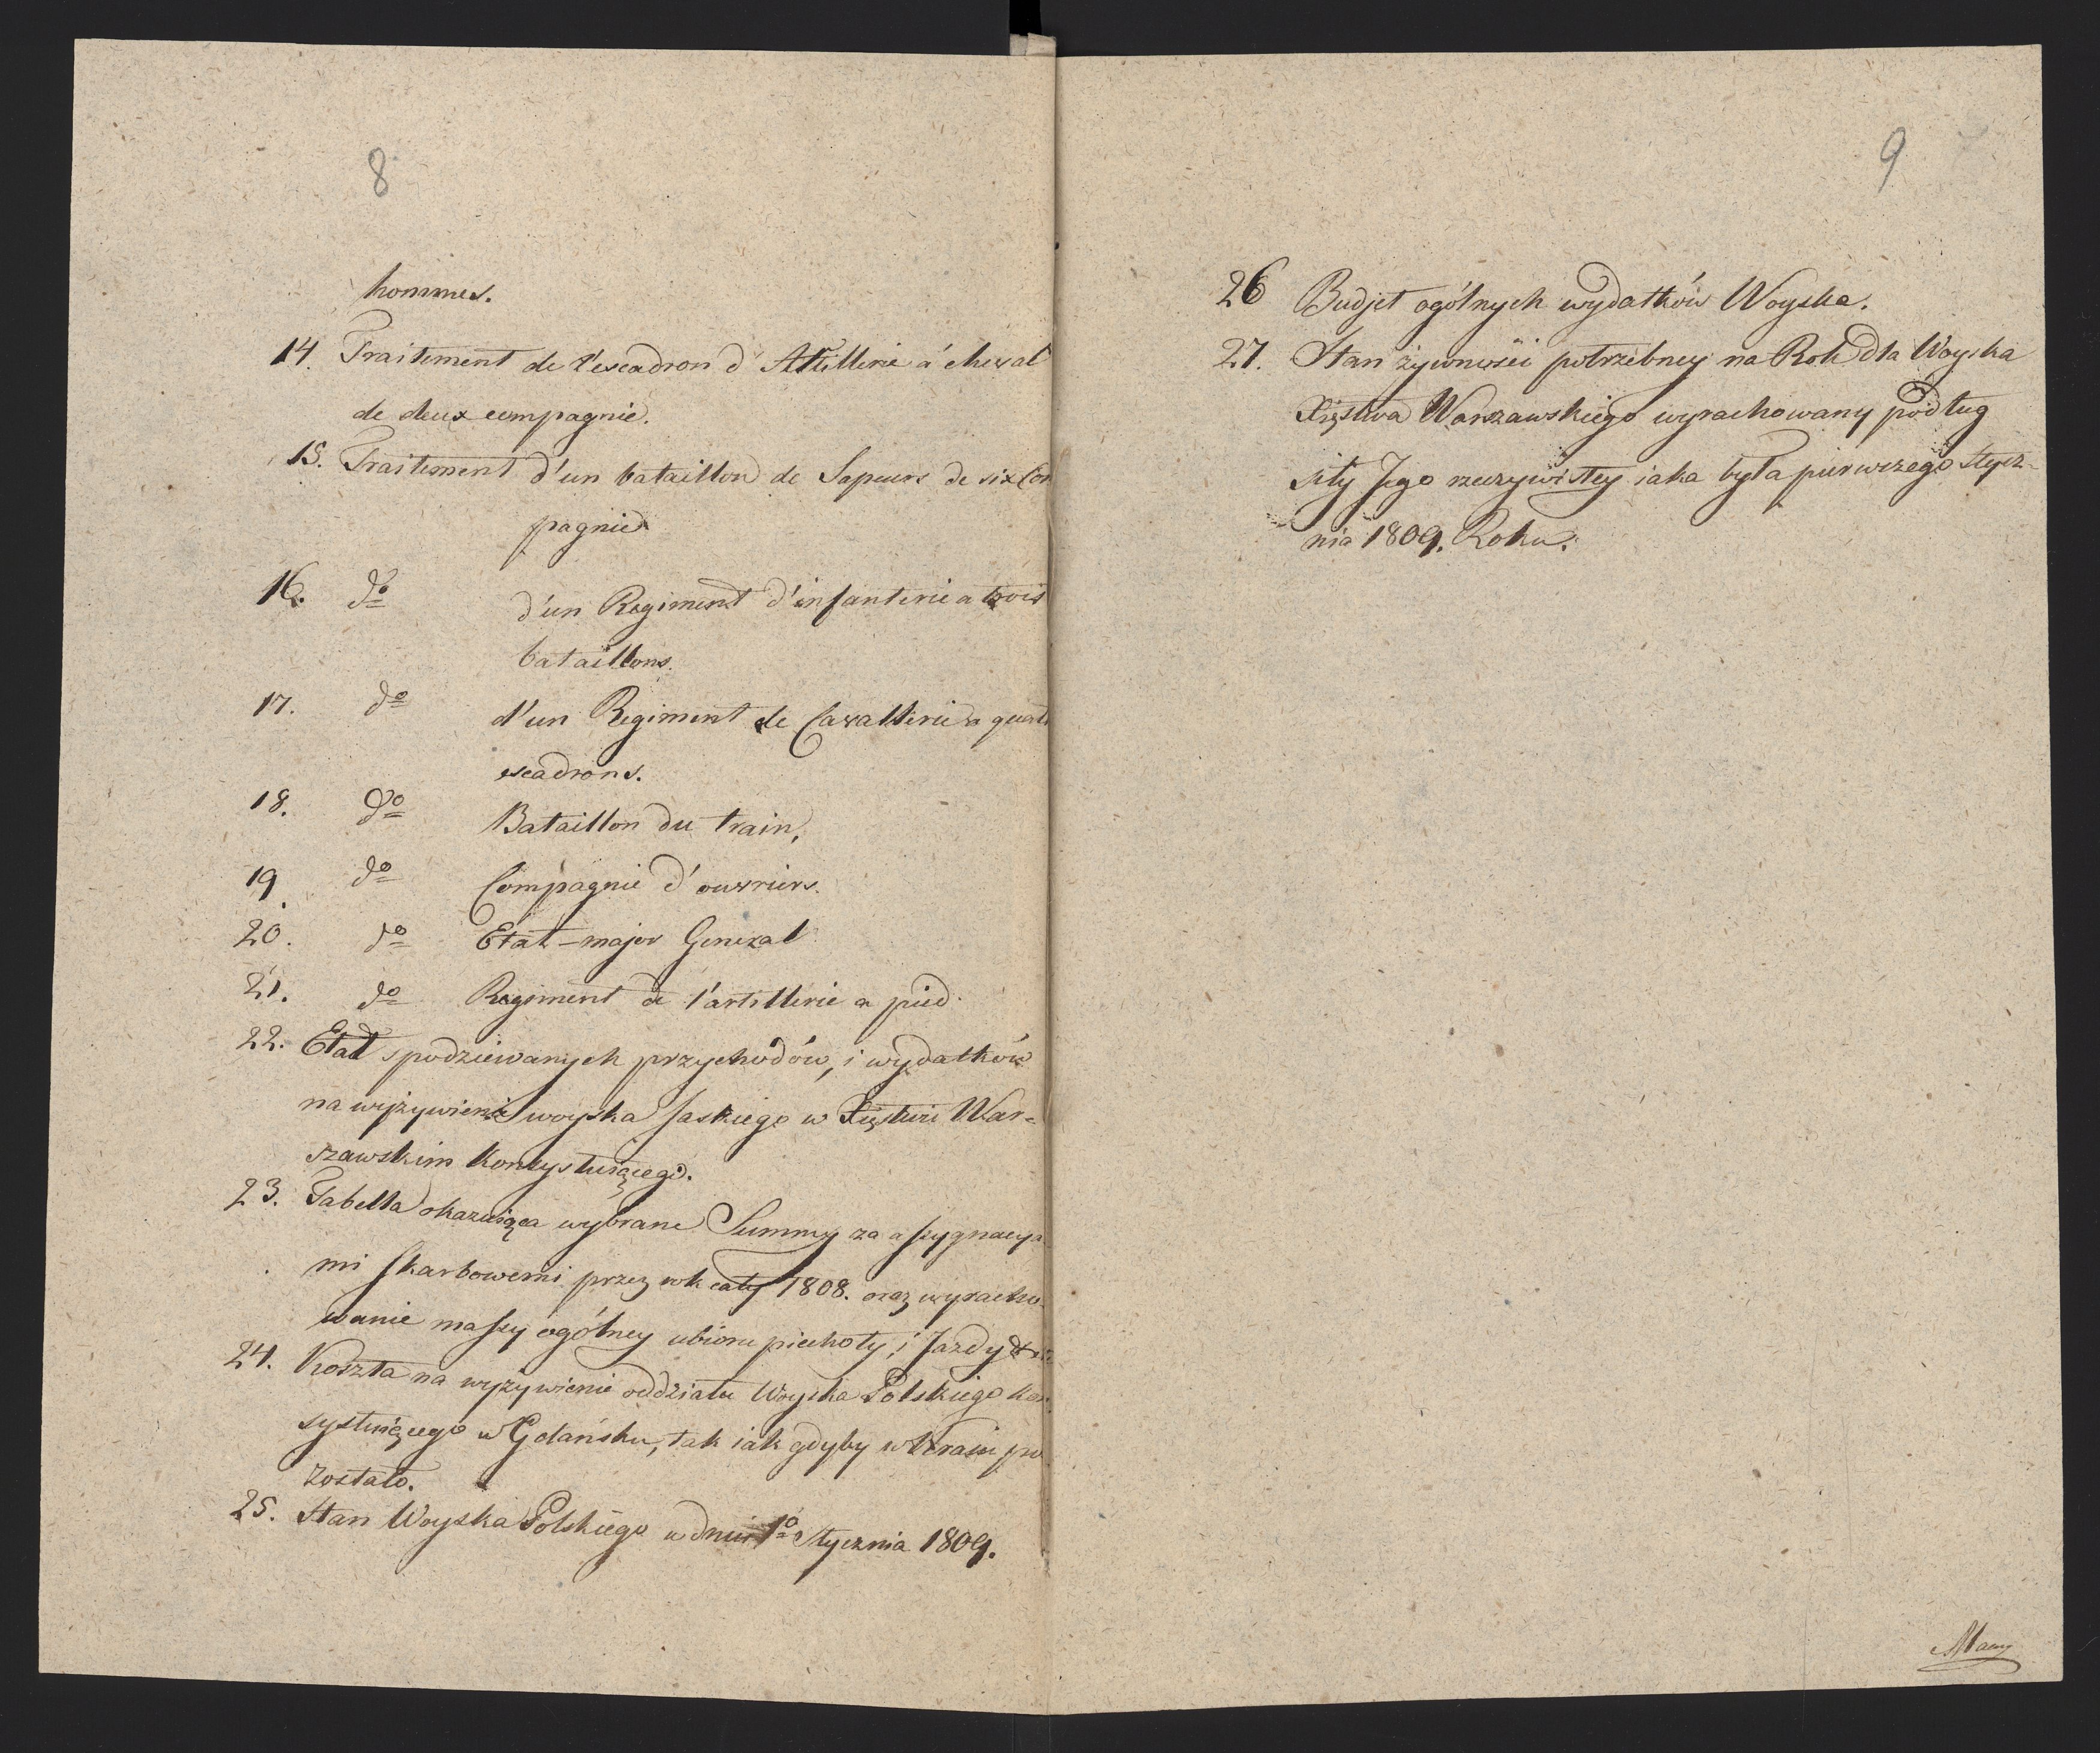 8
hommes.
14. Traitement de l'escadron d'Attillerie á cheval
de deux compagnie.
15. Traitement d'un bataillon de Sapeurs de six Com
pagnie
16. do d'un Regiment d'infanterie a trois
bataillons.
17. do d'un Regiment de Cavallerie a quatr
escadrons.
18. do Bataillon du train,
19. do Compagnie d'ouvriers.
20. do Etat-major General
21. do Regiment de l'artillerie a pied.
22. Etat spodziewanych przychodów, i wydatków
na wyżywienie woyska saskiego w Xięstwie War-
szawskim konsystuiącego.
23. Tabella okazuiąca wybrane Summy za assygnacya
mi skarbowemi przez rok cały 1808. oraz wyracho
wanie massy ogólney ubioru piechoty, i Jazdy
24. Koszta na wyżywienie oddziału Woyska Polskiego kon
systuiącego w Gdańsku, tak iak gdyby w kraiu po
zostało.
25. Stan Woyska Polskiego w dniu 1o Stycznia 1809.
9
26 Budjet ogólnych wydatków Woyska.
27. Stan żywności potrzebney na Rok dla Woyska
Xięstwa Warszawskiego wyrachowany podług
siły Jego rzeczywistey iaka była pierwszego Stycz-
nia 1809. Roku.